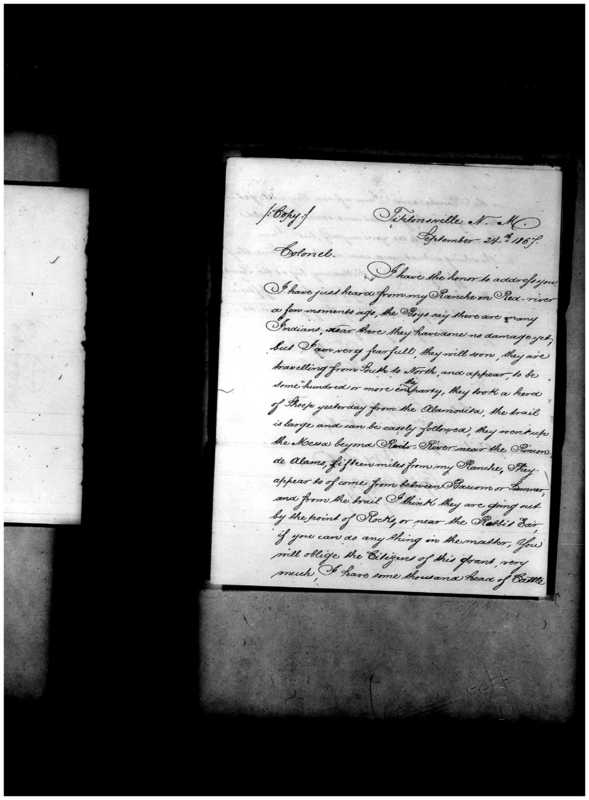 [:Copy:]
Tiptonsville N. M.
September 24th 1867.
Colonel.
I have the honor to address you
I have just heard from my Ranche on Red-river
a few moments ago, the Boys say there are many
Indians, near there they have done no damage yet,
but I am very fearfull, they will soon, they are
travelling from South to North, and appear, to be
some hundred or more in the party, they took a herd
of Sheep yesterday from the Alamosita, the trail
is large and can be easely followed, they went up
the Messa beyond Red-River near the
de Alams, fifteen miles from my Ranche, They
appear to of come from between Bascom or
and from the trail I think they are going out
by the point of Rocks, or near the Rabbit Ear,
if you can do any thing in the matter, You
will oblige the Citizens of this Grant, very
much, I have some thousand head of Cattle